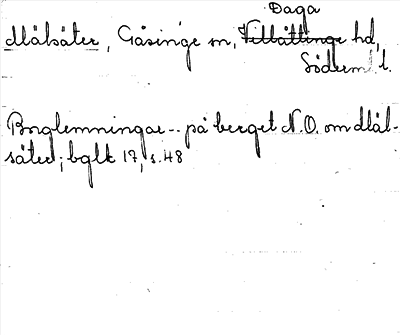 Daga
Målsäter, Gåsinge sn, Villåttinge hd,
Söderm. l.
Borglemningar -- på berget N.O. om Mål-
säter; bglt 17, s. 48